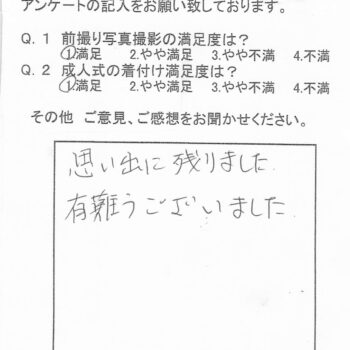 アンケートの記入をお願い致しております。
Q.1 前撮り写真撮影の満足度は?
1.満足 2.やや満足 3.やや不満 4.不満
Q.2 成人式の着付け満足度は?
1.満足 2.やや満足 3.やや不満 4.不満
その他 ご意見、ご感想をお聞かせください。
思い出に残りました
有難うございました